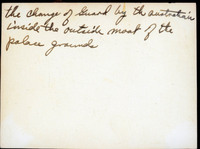 the change of Guard by the australian
inside the outside moat of the
palace grounds